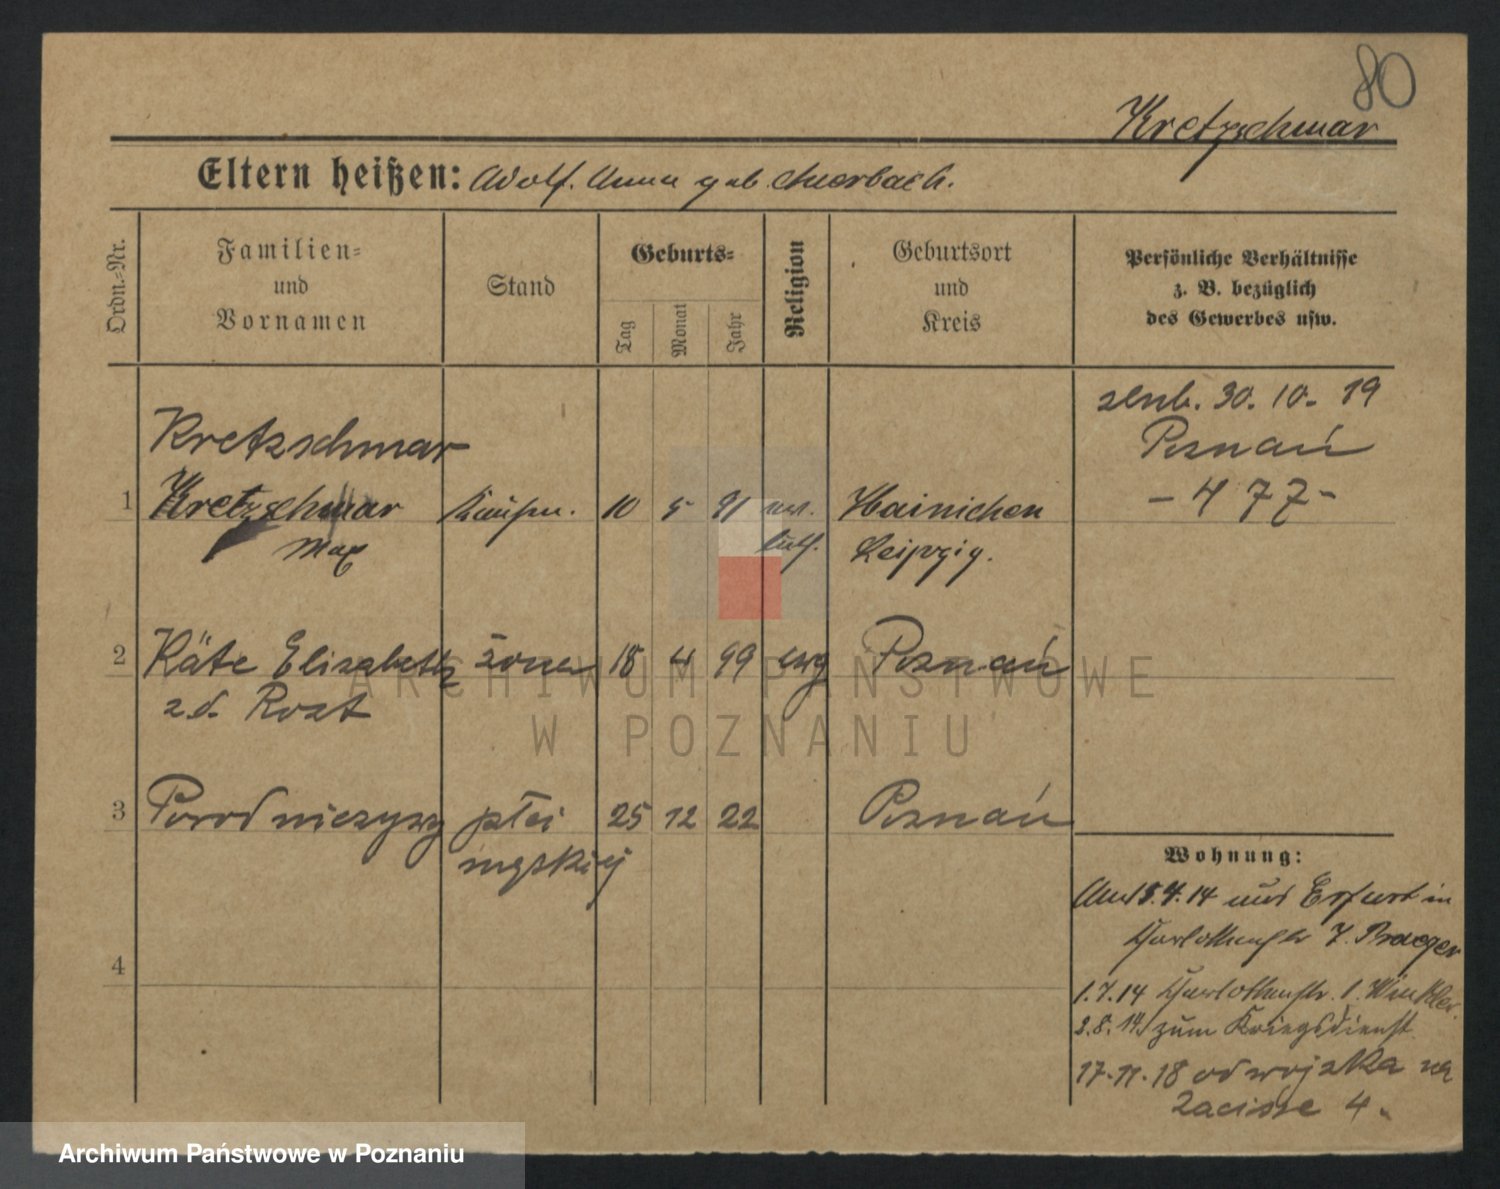 80
Kretzschmar
Eltern heißen: Adolf. Anna geb. Auerbach.
Ordn.-Nr.
Familien- und Vornamen
Stand
Geburts-
Tag
Monat
Jahr
Religion
Geburtsort und Kreis
Persönliche Verhältnisse
z. B. bezüglich
des Gewerbes usw.
30. 10. 19
Poznań
- 477 -
Kretzschmar
1 Kretzschmar Kaufm. 10 5 91 ev. Hainichen
Max luth. Leipzig.
2 Käte Elisabeth żona 18 4 99 ewg Poznań
z d. Rozt
3 Porod nieżywy płci 25 12 22 Poznań
męskiej
4
Wohnung:
Am 15.4.14 aus Erfurt in
7. Braeger
1.7.14 1. Winkler.
2.8.14 zum Kriegsdienst
17.11.18 od wojska na
Zacisze 4.
ARCHIWUM PAŃSTWOWE
W POZNANIU
Archiwum Państwowe w Poznaniu